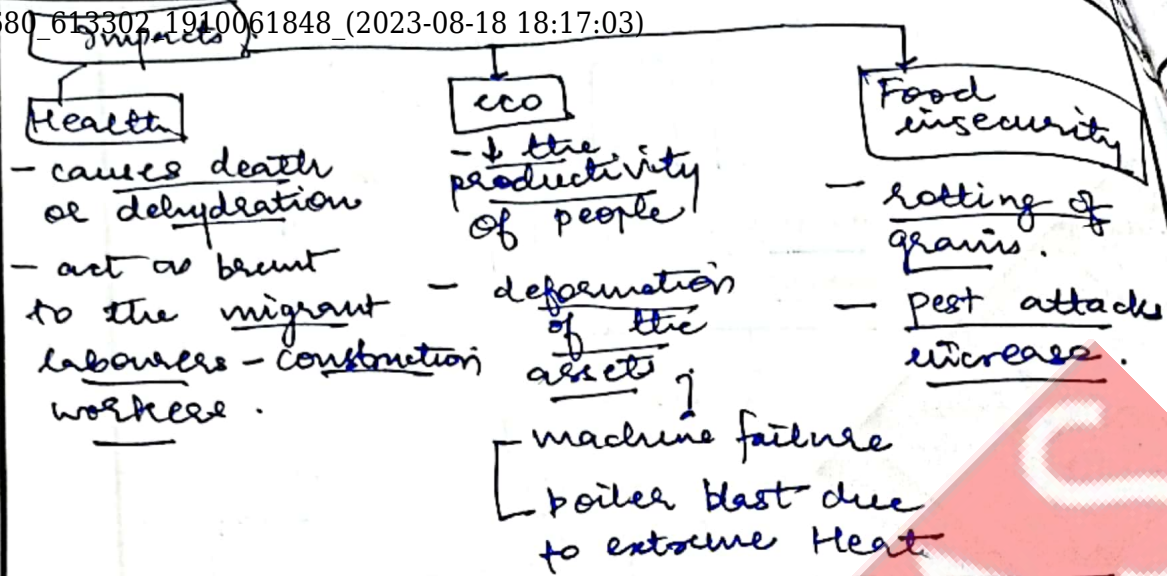 580_613302_1910061848_(2023-08-18 18:17:03)
Impacts
Health
- causes death
or dehydration
- act as brunt
to the migrant
labourers - construction
workers .
eco
- ↓ the
productivity
of people
- deformation
of the
assets
machine failure
boiler blast due
to extreme Heat
Food
insecurity
- rotting of
grains .
- pest attacks
increase .